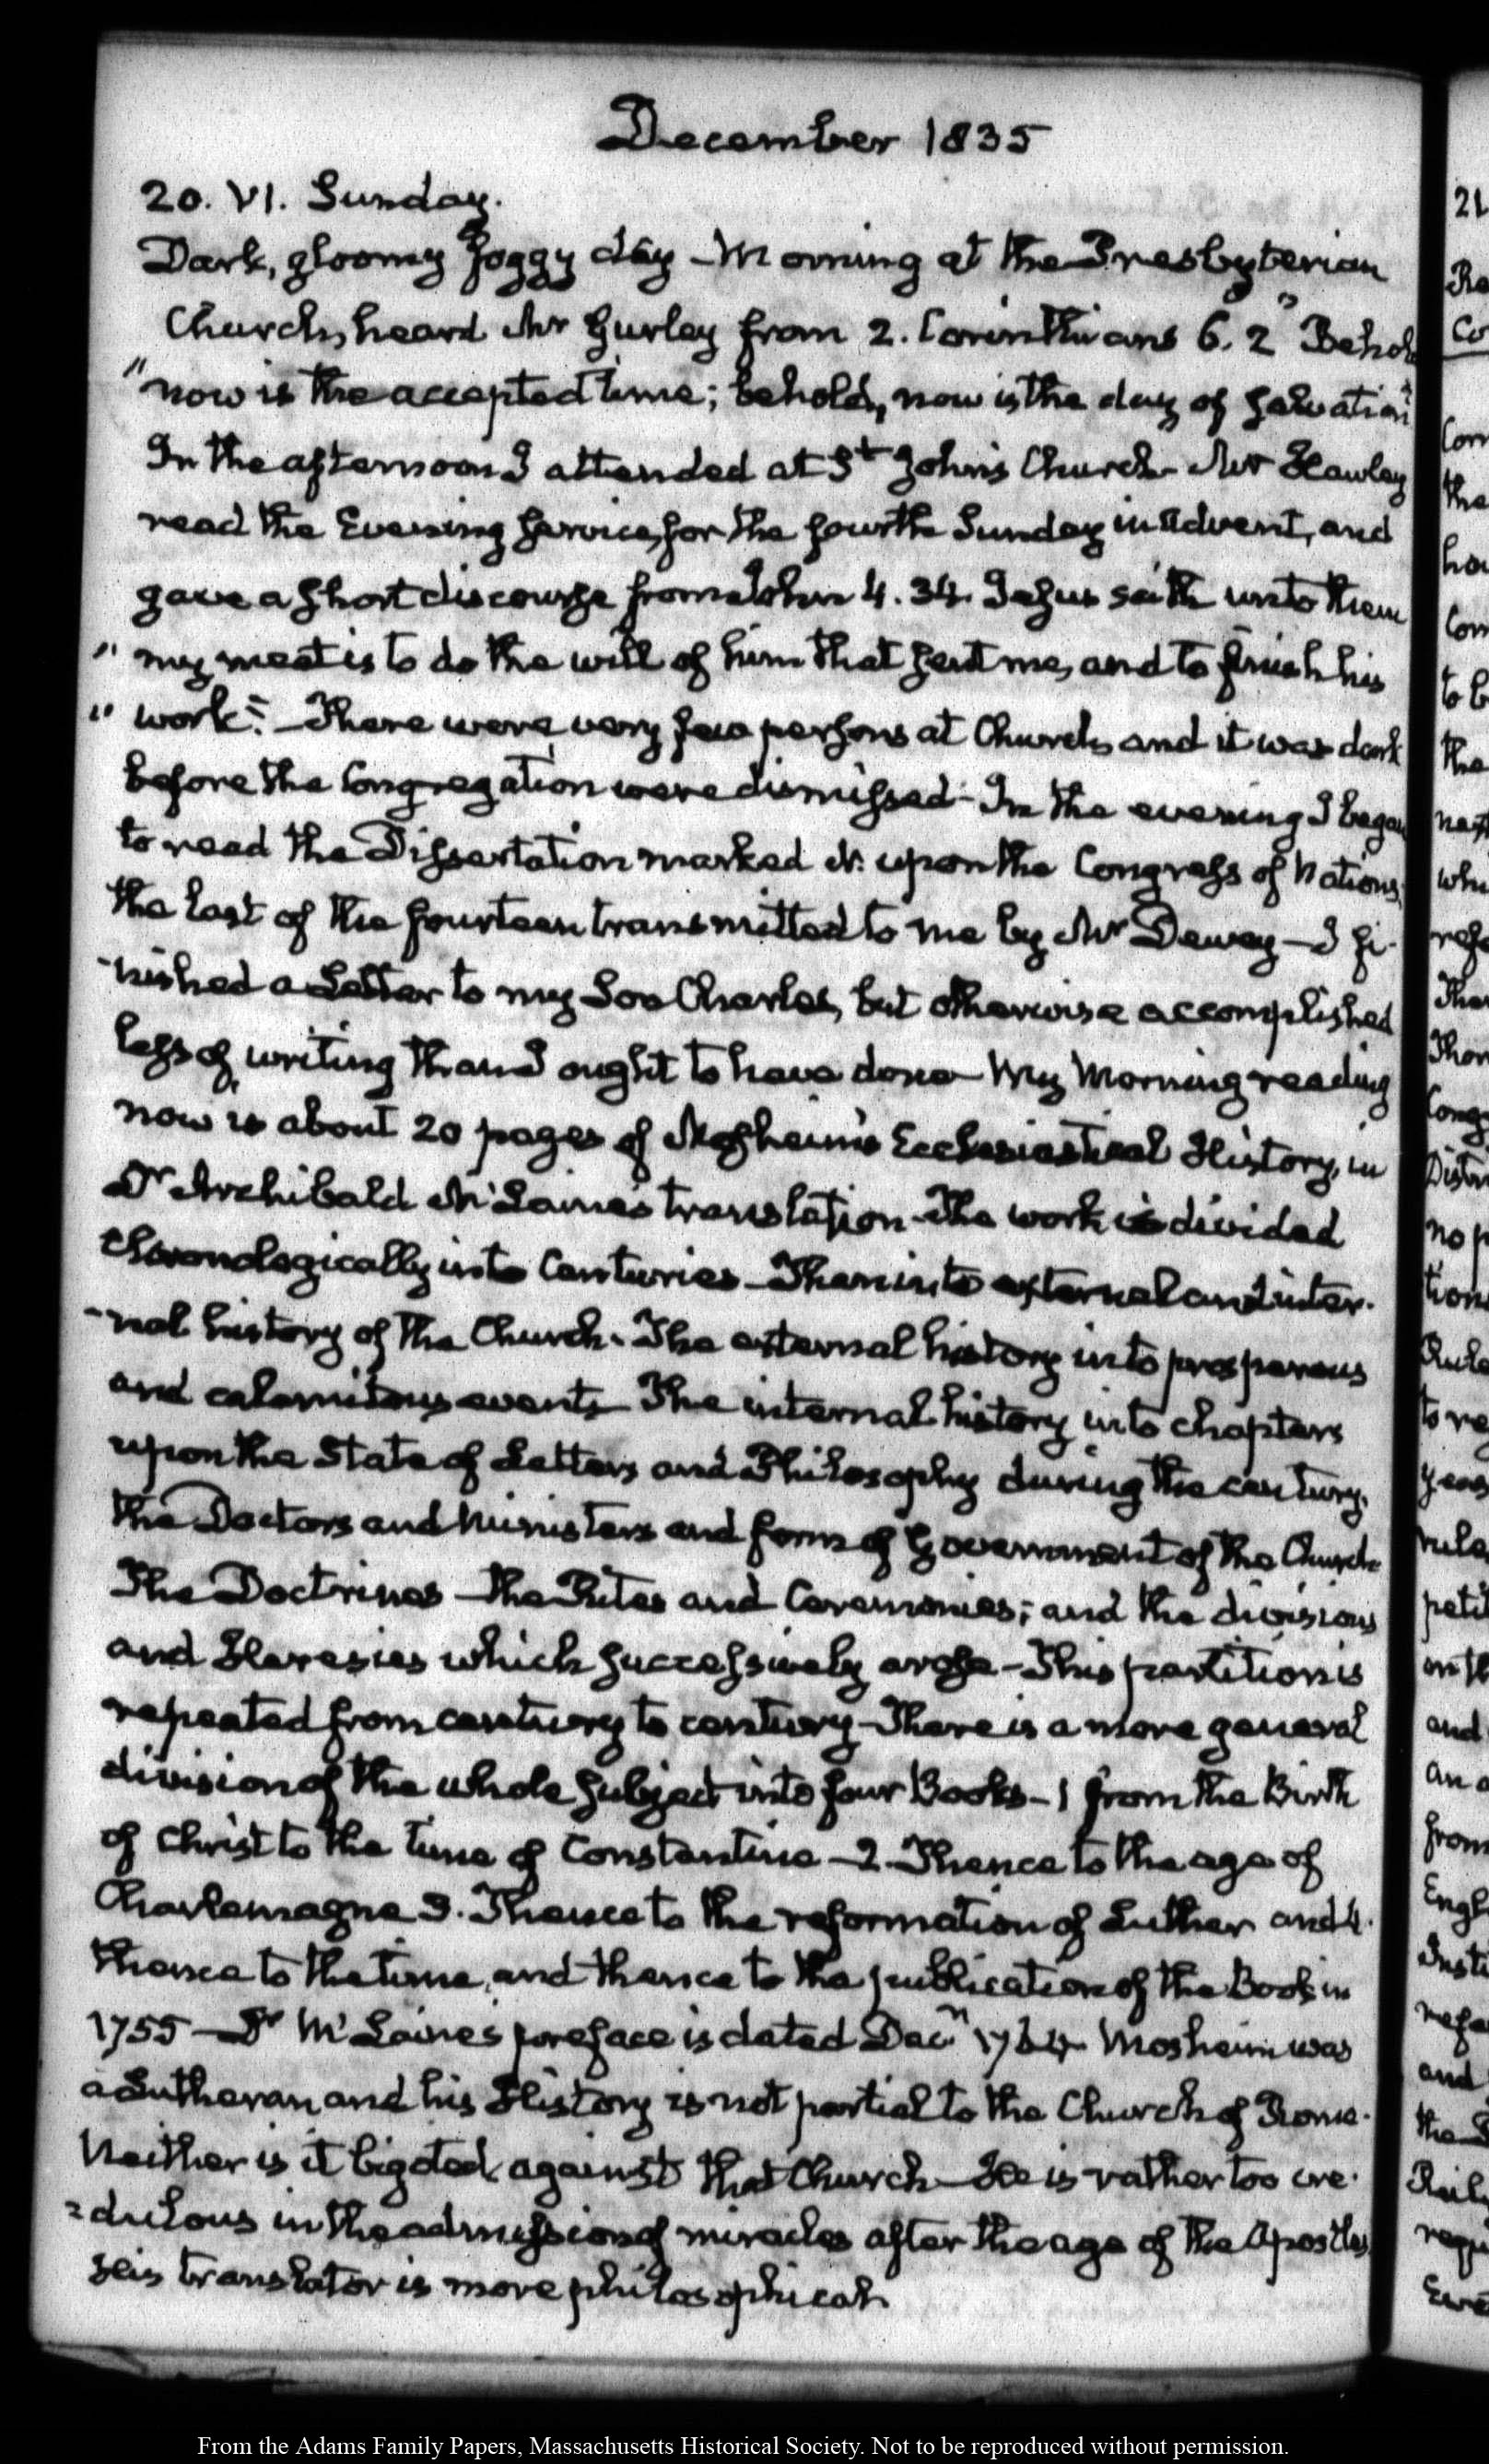 December 1835
20. VI. Sunday.
Dark, gloomy foggy day – Morning at the Presbyterian
Church, heard Mr Gurley from 2. Corinthians 6. 2 "Behold
"now is the accepted time; behold, now is the day of salvation"
In the afternoon I attended at St John's Church – Mr Hawley
read the Evening service, for the fourth Sunday in Advent, and
gave a short discourse from John 4. 34. Jesus saith unto them
" my meat is to do the will of him that sent me, and to finish his
" work." – There were very few persons at Church, and it was dark
before the Congregation were dismissed – In the evening I began
to read the Dissertation marked N. upon the Congress of Nations,
the last of the fourteen transmitted to me by Mr Dewey – I fi-
-nished a Letter to my Son Charles, but otherwise accomplished
less of writing than I ought to have done – My Morning reading
now is about 20 pages of Mosheim's Ecclesiastical History, in
Dr Archibald McLaine's translation – The work is divided
chronologically into Centuries – Then into external and inter-
-nal history of the Church – The external history into prosperous
and calamitous events – The internal history into chapters
upon the State of Letters and Philosophy during the century,
the Doctors and Ministers and form of Government of the Church
The Doctrines – the Rites and Ceremonies; and the divisions
and Heresies which successively arose – This partition is
repeated from century to century – There is a more general
division of the whole subject into four Books – 1 from the Birth
of Christ to the time of Constantine – 2. Thence to the age of
Charlemagne 3. Thence to the reformation of Luther and 4.
thence to the time, and thence to the publication of the Book in
1755 – Dr McLaine's preface is dated Decr 1764. Mosheim was
a Lutheran, and his History is not partial to the Church of Rome.
Neither is it bigoted against that Church – He is rather too cre-
-dulous in the admission of miracles after the age of the Apostles,
His translator is more philosophical.
21
Re
Co
Com
the
ho
Com
to b
the
nex
whi
refe
Tha
Thom
Cong
Distri
no p
tion
Rule
to re
years
rule
peti
on th
and
an a
from
Engl
Insti
refe
and
the
Rail
requ
Eve
From the Adams Family Papers, Massachusetts Historical Society. Not to be reproduced without permission.